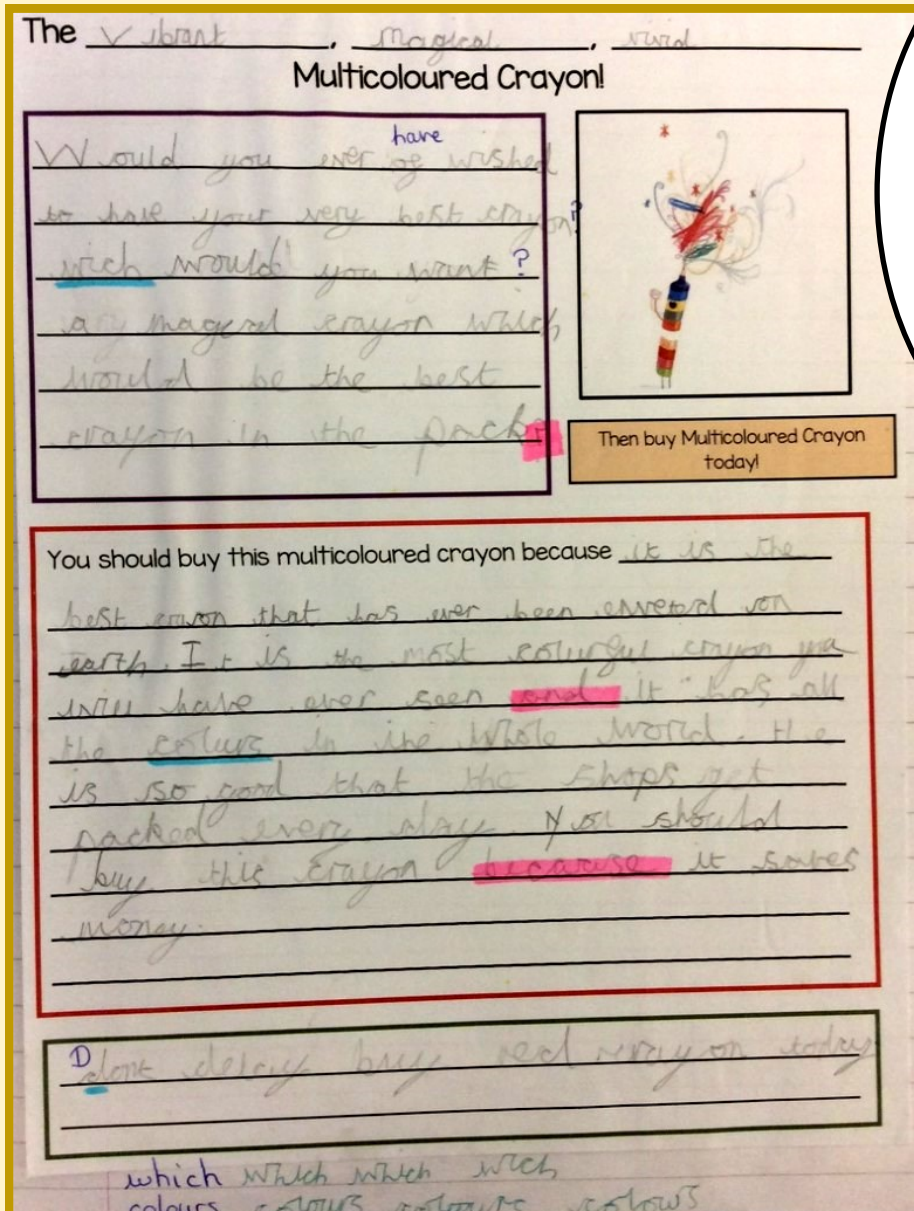 The Vibrant, Magical, vivid
Multicoloured Crayon!
have
Would you ever of wished
to have your very best crayon?
wich would you want ?
any magercal crayon which
would be the best
crayon in the pack?
Then buy Multicoloured Crayon
today!
You should buy this multicoloured crayon because it is the
best crayon that has ever been on
earth. It is the most colurful crayon you
will have ever seen and it has all
the colurs in the whole world. 
is so good that the shops get
packed every day. You should
buy this crayon because it saves
money.
D
dont delay buy red crayon today
which which which wich
colours colours colours colours